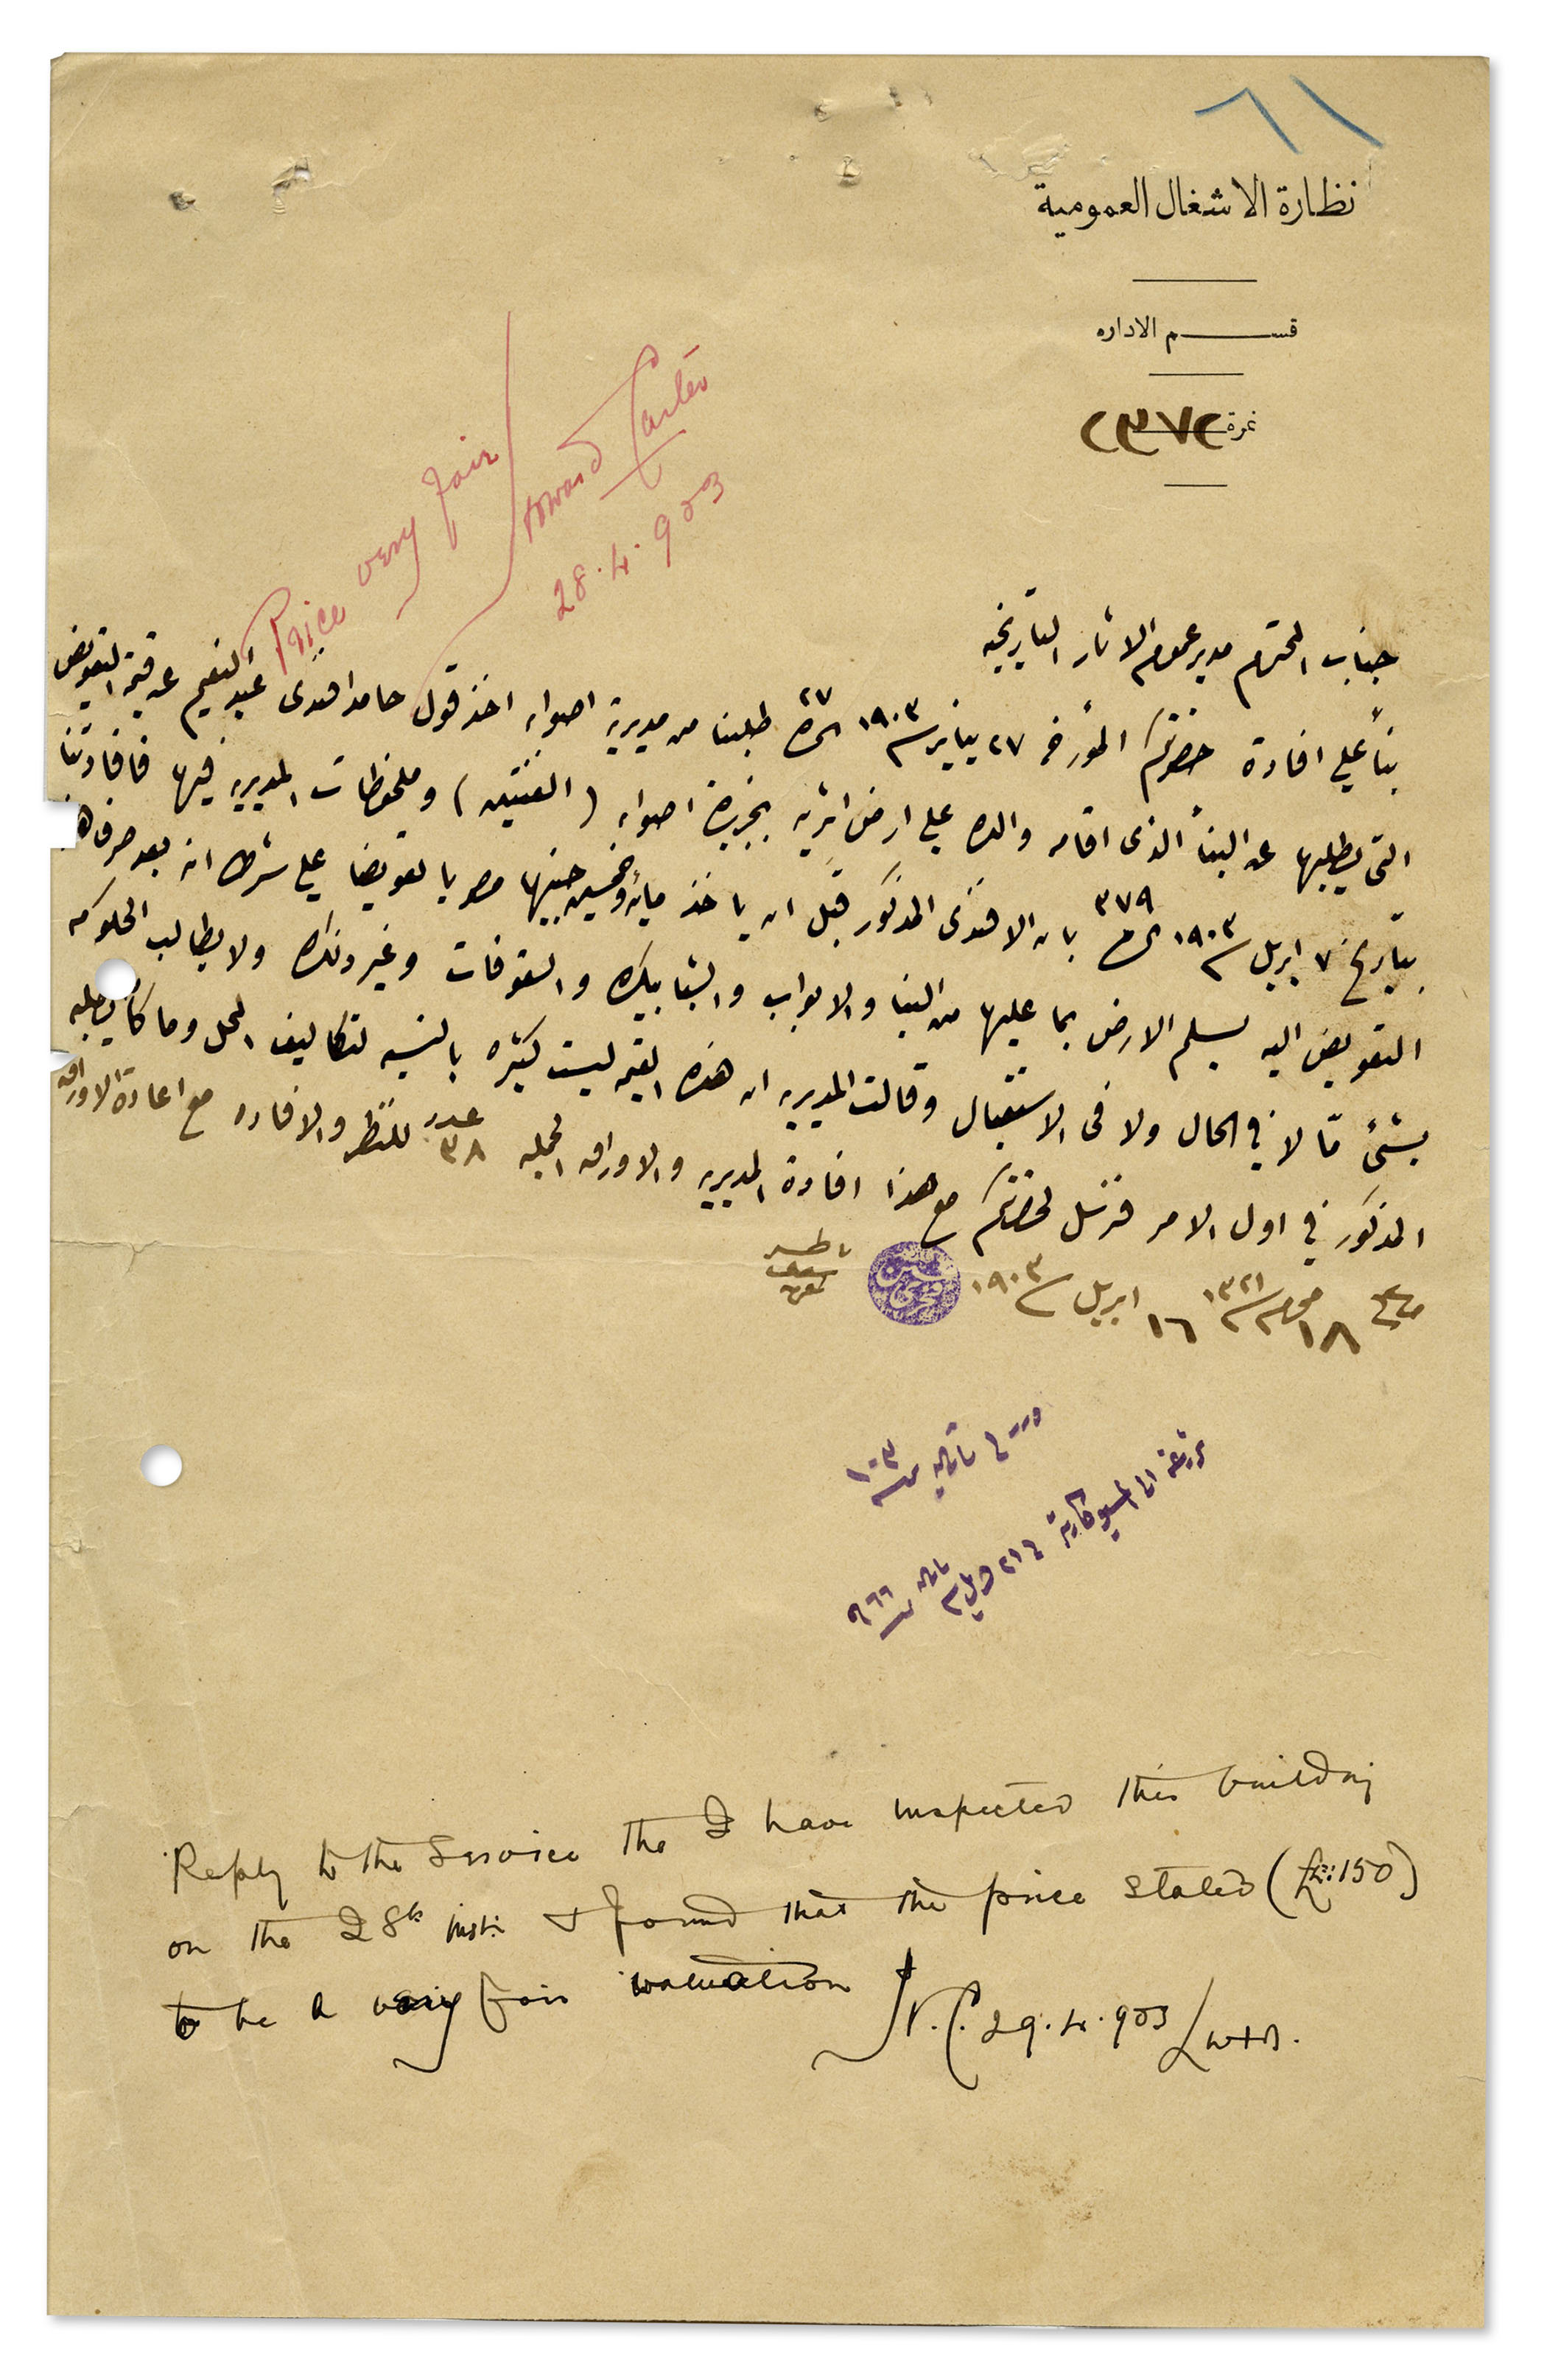 ٦١
نظارة الاشغال العمومية
قسم الاداره
نمرة ٢٣٧٢
Price very fair
Howard Carter
28.4.903
جناب المحترم مدير عموم الاثار التاريخيه
بنأً علي افادة حضرتكم المؤرخه ٢٧ يناير سنة ١٩٠٣ نمرة ٢٧ طلبنا من مديرية اصوان اخذ قول حامد افندى عبد النعيم عن قيمة التعويض
التى يطلبها عن البنأ الذى اقامه والده علي ارض اثريه بجزيرة اصوان (الفنتين) وملحوظات المديريه فيها فافادتنا
بتاريخ ٧ ابريل سنة ١٩٠٣ نمرة ٣٧٩ بان الافندى المذكور قبل ان ياخذ مايه وخمسين جنيها مصريا تعويضا علي شرط انه بعد صرف هذا
التعويض اليه يسلم الارض بما عليها من البنا والابواب والشبابيك والسقوفات وغير ذلك ولا يطالب الحكومه
بشئ مّا لا في الحال ولا فى الاستقبال وقالت المديريه ان هذه القيمه ليست كثيره بالنسبه لتكاليف المحل وما كان يطلبه
المذكور في اول الامر فنرسل لحضرتكم مع هذا افادة المديريه والاوراق الجمله عدد ٣٨ للنظر والافاده مع اعادة الاوراق
١٨ محرم سنة ١٣٢١ ١٦ ابريل سنة ١٩٠٣
ناظر
Reply to the Service the I have inspected this building
on the 28th inst: & found that the price stated (£E:150)
to be a very fair valuation
H.C. 29.4.903